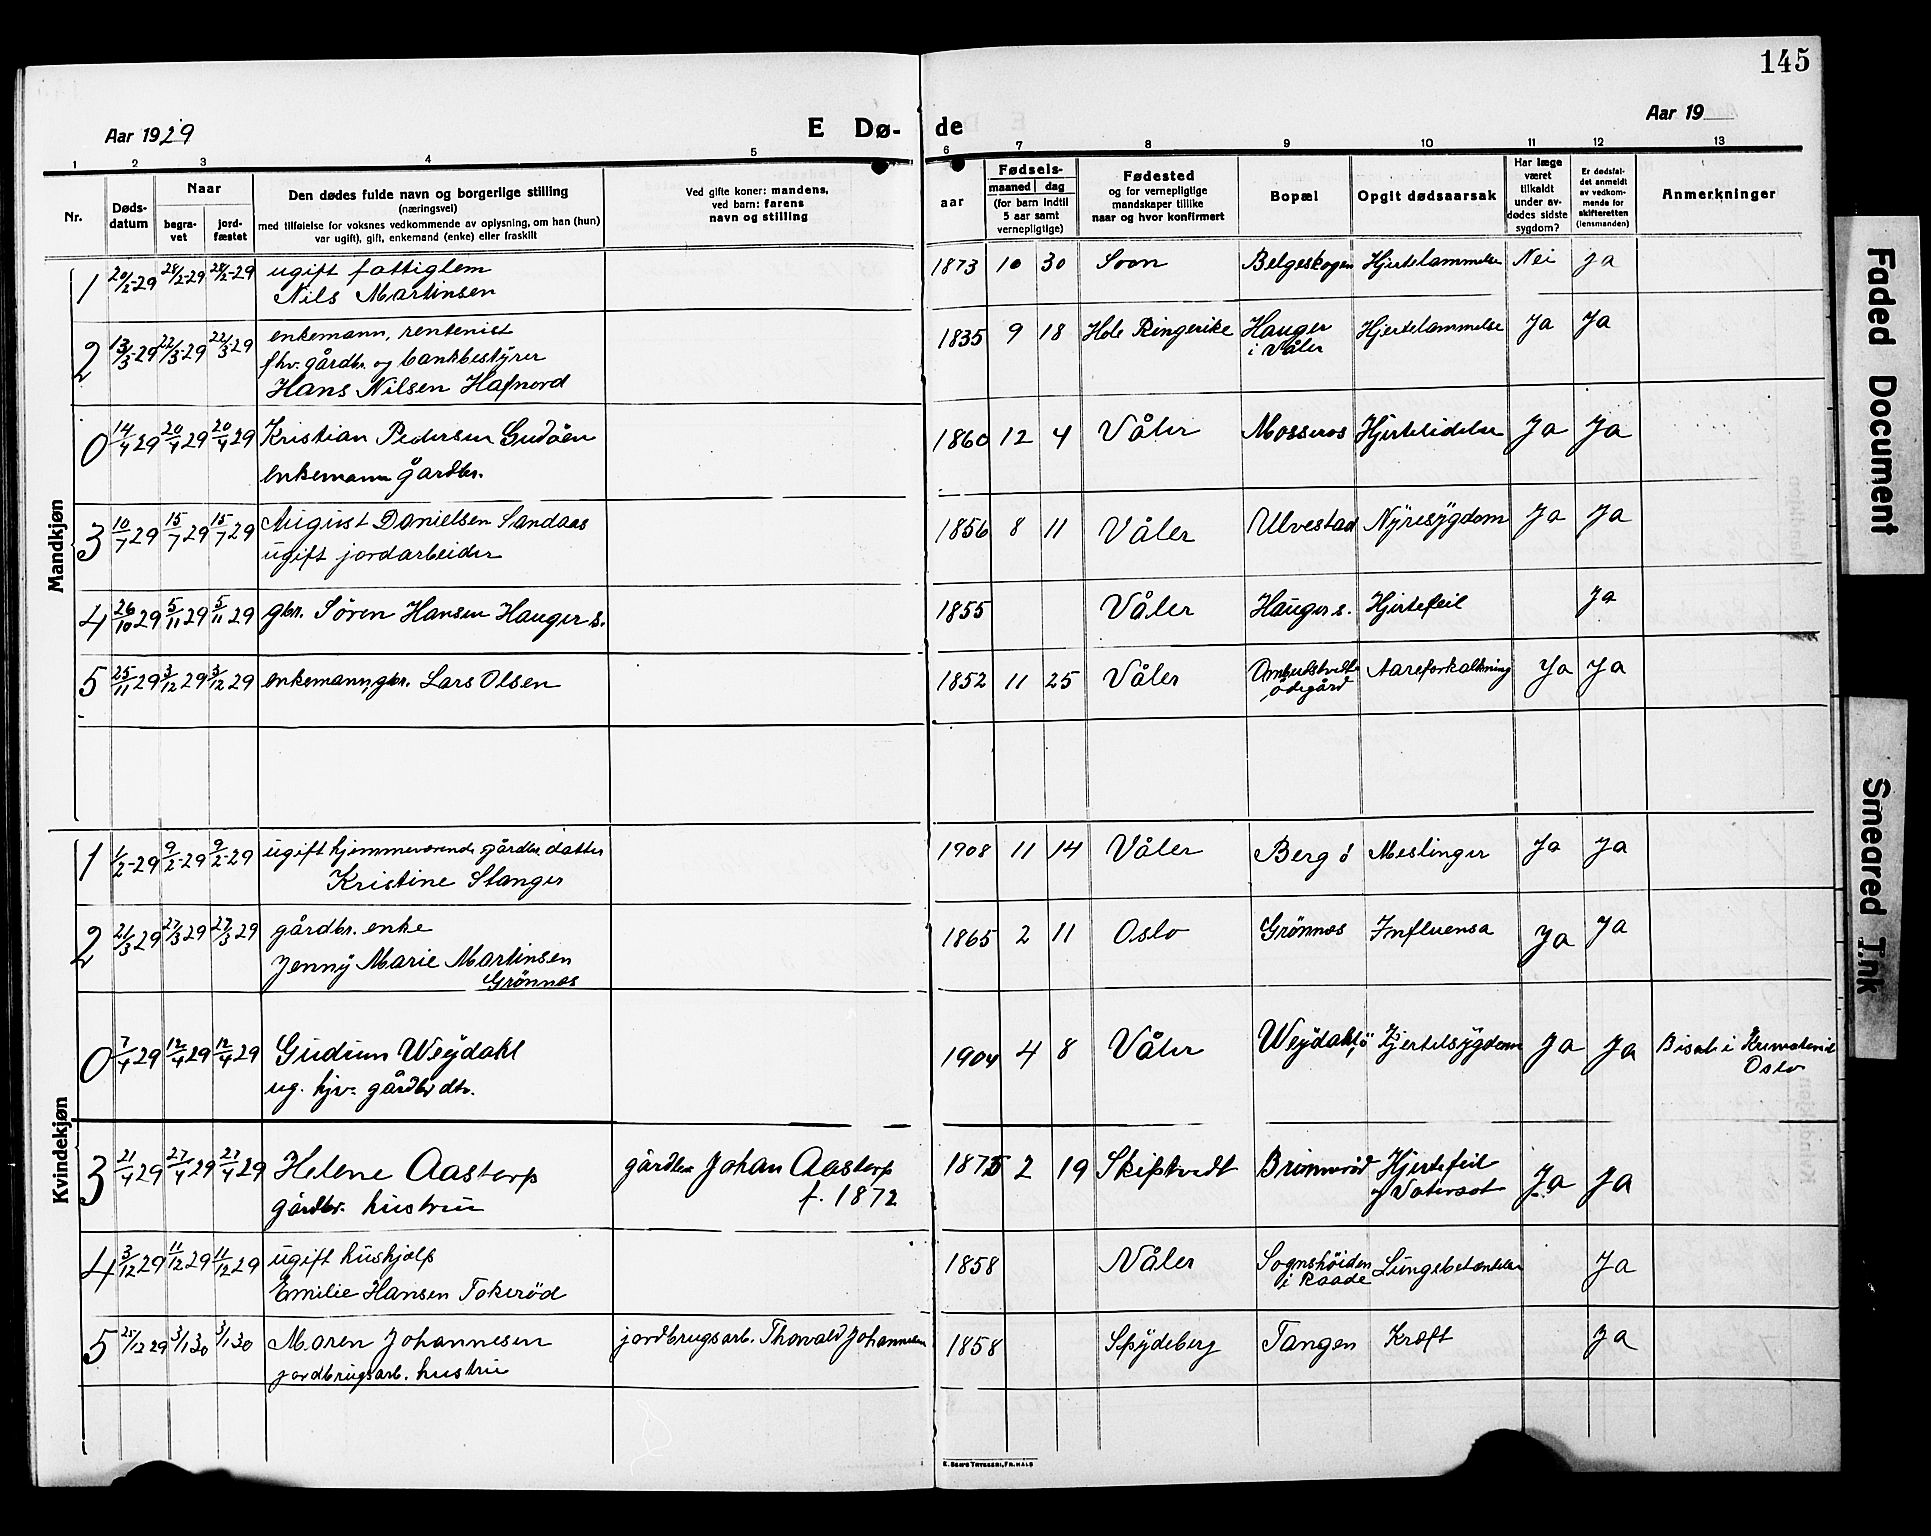 145
Aar 1929
E Dø-
de
Aar 19
1 2 3 4 5 6 7 8 9 10 11 12 13
Nr.
Døds-
datum
Naar
begra-
vet
jord-
fæstet
Den dødes fulde navn og borgerlige stilling
(næringsvei)
med tilføielse for voksnes vedkommende av oplysning, om han (hun)
var ugift), gift, enkemand (enke) eller fraskilt
Ved gifte koner: mandens,
ved barn: farens
navn og stilling
aar
Fødsels-
maaned dag
(for barn indtil
5 aar samt
vernepligtige)
Fødested
og for vernepligtige
mandskaper tillike
naar og hvor konfirmert
Bopæl
Opgit dødsaarsak
Har læge
været
tilkaldt
under av-
dødes sidste
sygdom?
Er dødsfal-
det anmeldt
av vedkom-
mende for
skifteretten
(lensmanden)
Anmerkninger
Mandkjøn
1 20/2-29 28/2-29 28/2-29 ugift fattiglem
Nils Martinsen
1873 10 30 Soon Belgeskogen Hjertelammelse Nei ja
2 13/3-29 22/3-29 22/3-29 enkemann, rentenist
fhv. gårdbr. og bankbestyrer
Hans Nilsen Hafnord
1835 9 18 Hole Ringerike Hauger
i Våler
Hjertelammelse Ja Ja
0 14/4 29 20/4 29 20/4 29 Kristian Pedersen Gudøen
enkemann gårdbr.
1860 12 4 Våler Mosseros Hjertelidelse Ja Ja
3 10/7 29 15/7 29 15/7 29 August Danielsen Sandaas
ugift jordarbeider
1856 8 11 Våler Ulvestad Nyresygdom Ja Ja
4 26/10 29 5/11 29 5/11 29 gbr. Søren Hansen Hauger s.
1855 Våler Hauger s. Hjertefeil Ja
5 25/11 29 3/12 29 3/12 29 enkemann, gbr. Lars Olsen
1852 11 25 Våler Ombudstvedt
ødegård
Aareforkalkning Ja Ja
Kvindekjøn
1 1/2-29 9/2-29 9/2-29 ugift hjemmeværende gårdbr. datter
Kristine Stanger
1908 11 14 Våler Berg ø Meslinger Ja Ja
2 21/3 29 27/3 29 27/3 29 gårdbr. enke
Jenny Marie Martinsen
Grønnæs
1865 2 11 Oslo Grønnæs Influensa Ja Ja
0 7/4 29 12/4 29 12/4 29 Gudrun Weydahl
ug. hjv. gårdbr dtr.
1904 4 8 Våler Weydahl ø Hjertesygdom Ja Ja Bisat i Krematoriet
Oslo
3 21/4 29 27/4 29 27/4 29 Helene Aastorp
gårdbr. hustru
gårdbr Johan Aastorp
f. 1872
1875 2 19 Skiptvedt Brinnerød Hjertefeil
og Vatersot
Ja Ja
4 3/12 29 11/12 29 11/12 29 ugift hushjelp
Emilie Hansen Tokerød
1858 Våler Sognshøiden
i Raade
Lungebetændelse Ja
5 25/12 29 3/1 30 3/1 30 Maren Johannesen
jordbrugsarb. hustru
jordbrugsarb. Thorvald Johannesen
1858 Spydeberg Tangen Kræft Ja
E. SEM'S TRYKKERI, FR.HALD
Faded Document
Smeared Ink